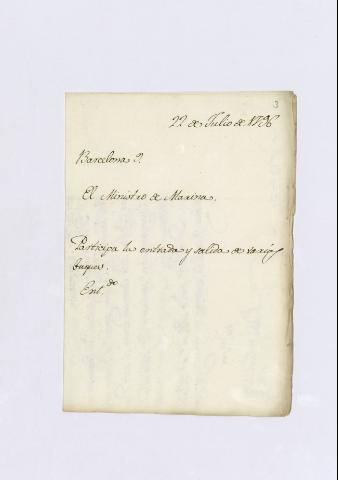 3
22 de Julio de 1796
Barcelona
El Ministro de Marina.
Participa la entrada y salida de varios
buques.
Ent.do